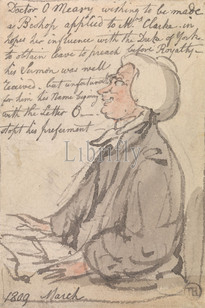 Doctor O Meary wishing to be made
a Bishop applied to Mrs Clarke in
hopes her influence with the Duke of Yorke
to obtain leave to preach before Royalty —
his Sermon was well
received — but unfortunately
for him his Name begining
with the Letter O —
stopt his preferment
Librifly
1809 March